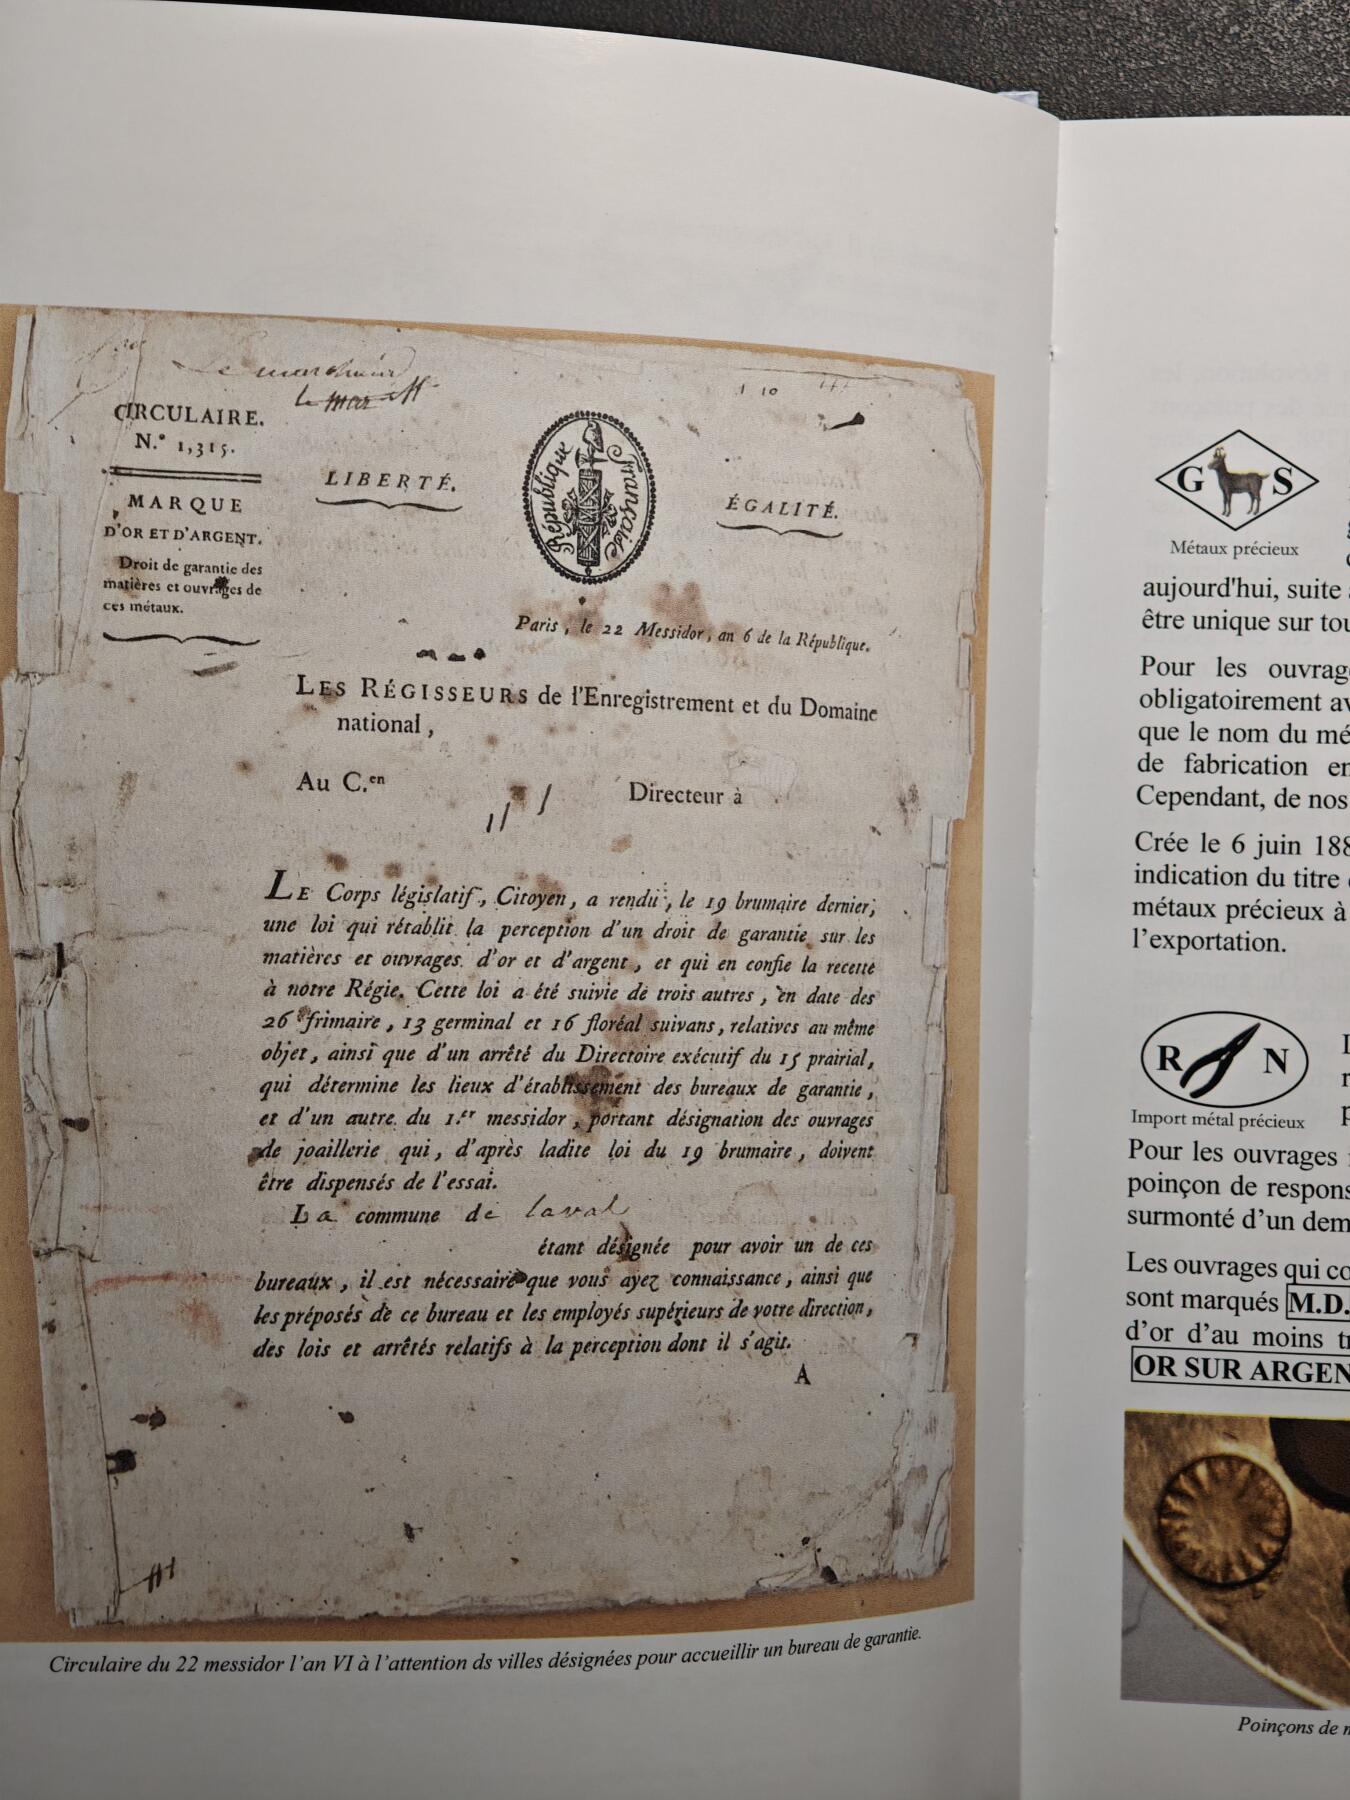 Le marchand
CIRCULAIRE.
N.º 1,315.
MARQUE
D'OR ET D'ARGENT.
Droit de garantie des
matières et ouvrages de
ces métaux.
LIBERTÉ.
République Française
ÉGALITÉ.
Paris, le 22 Messidor, an 6 de la République.
LES RÉGISSEURS de l'Enregistrement et du Domaine
national,
Au C.en Directeur à
LE Corps législatif, Citoyen, a rendu, le 19 brumaire dernier,
une loi qui rétablit la perception d'un droit de garantie sur les
matières et ouvrages d'or et d'argent, et qui en confie la recette
à notre Régie. Cette loi a été suivie de trois autres, en date des
26 frimaire, 13 germinal et 16 floréal suivans, relatives au même
objet, ainsi que d'un arrêté du Directoire exécutif du 15 prairial,
qui détermine les lieux d'établissement des bureaux de garantie,
et d'un autre du 1.er messidor, portant désignation des ouvrages
de joaillerie qui, d'après ladite loi du 19 brumaire, doivent
être dispensés de l'essai.
La commune de laval
étant désignée pour avoir un de ces
bureaux, il est nécessaire que vous ayez connaissance, ainsi que
les préposés de ce bureau et les employés supérieurs de votre direction,
des lois et arrêtés relatifs à la perception dont il s'agit.
A
Circulaire du 22 messidor l'an VI à l'attention ds villes désignées pour accueillir un bureau de garantie.
G S
Métaux précieux
aujourd'hui, suite
être unique sur tou
Pour les ouvrage
obligatoirement av
que le nom du mé
de fabrication en
Cependant, de nos
Crée le 6 juin 188
indication du titre
métaux précieux à
l'exportation.
R N
Import métal précieux
Pour les ouvrages
poinçon de respons
surmonté d'un dem
Les ouvrages qui co
sont marqués M.D.
d'or d'au moins tr
OR SUR ARGEN
Poinçons de m